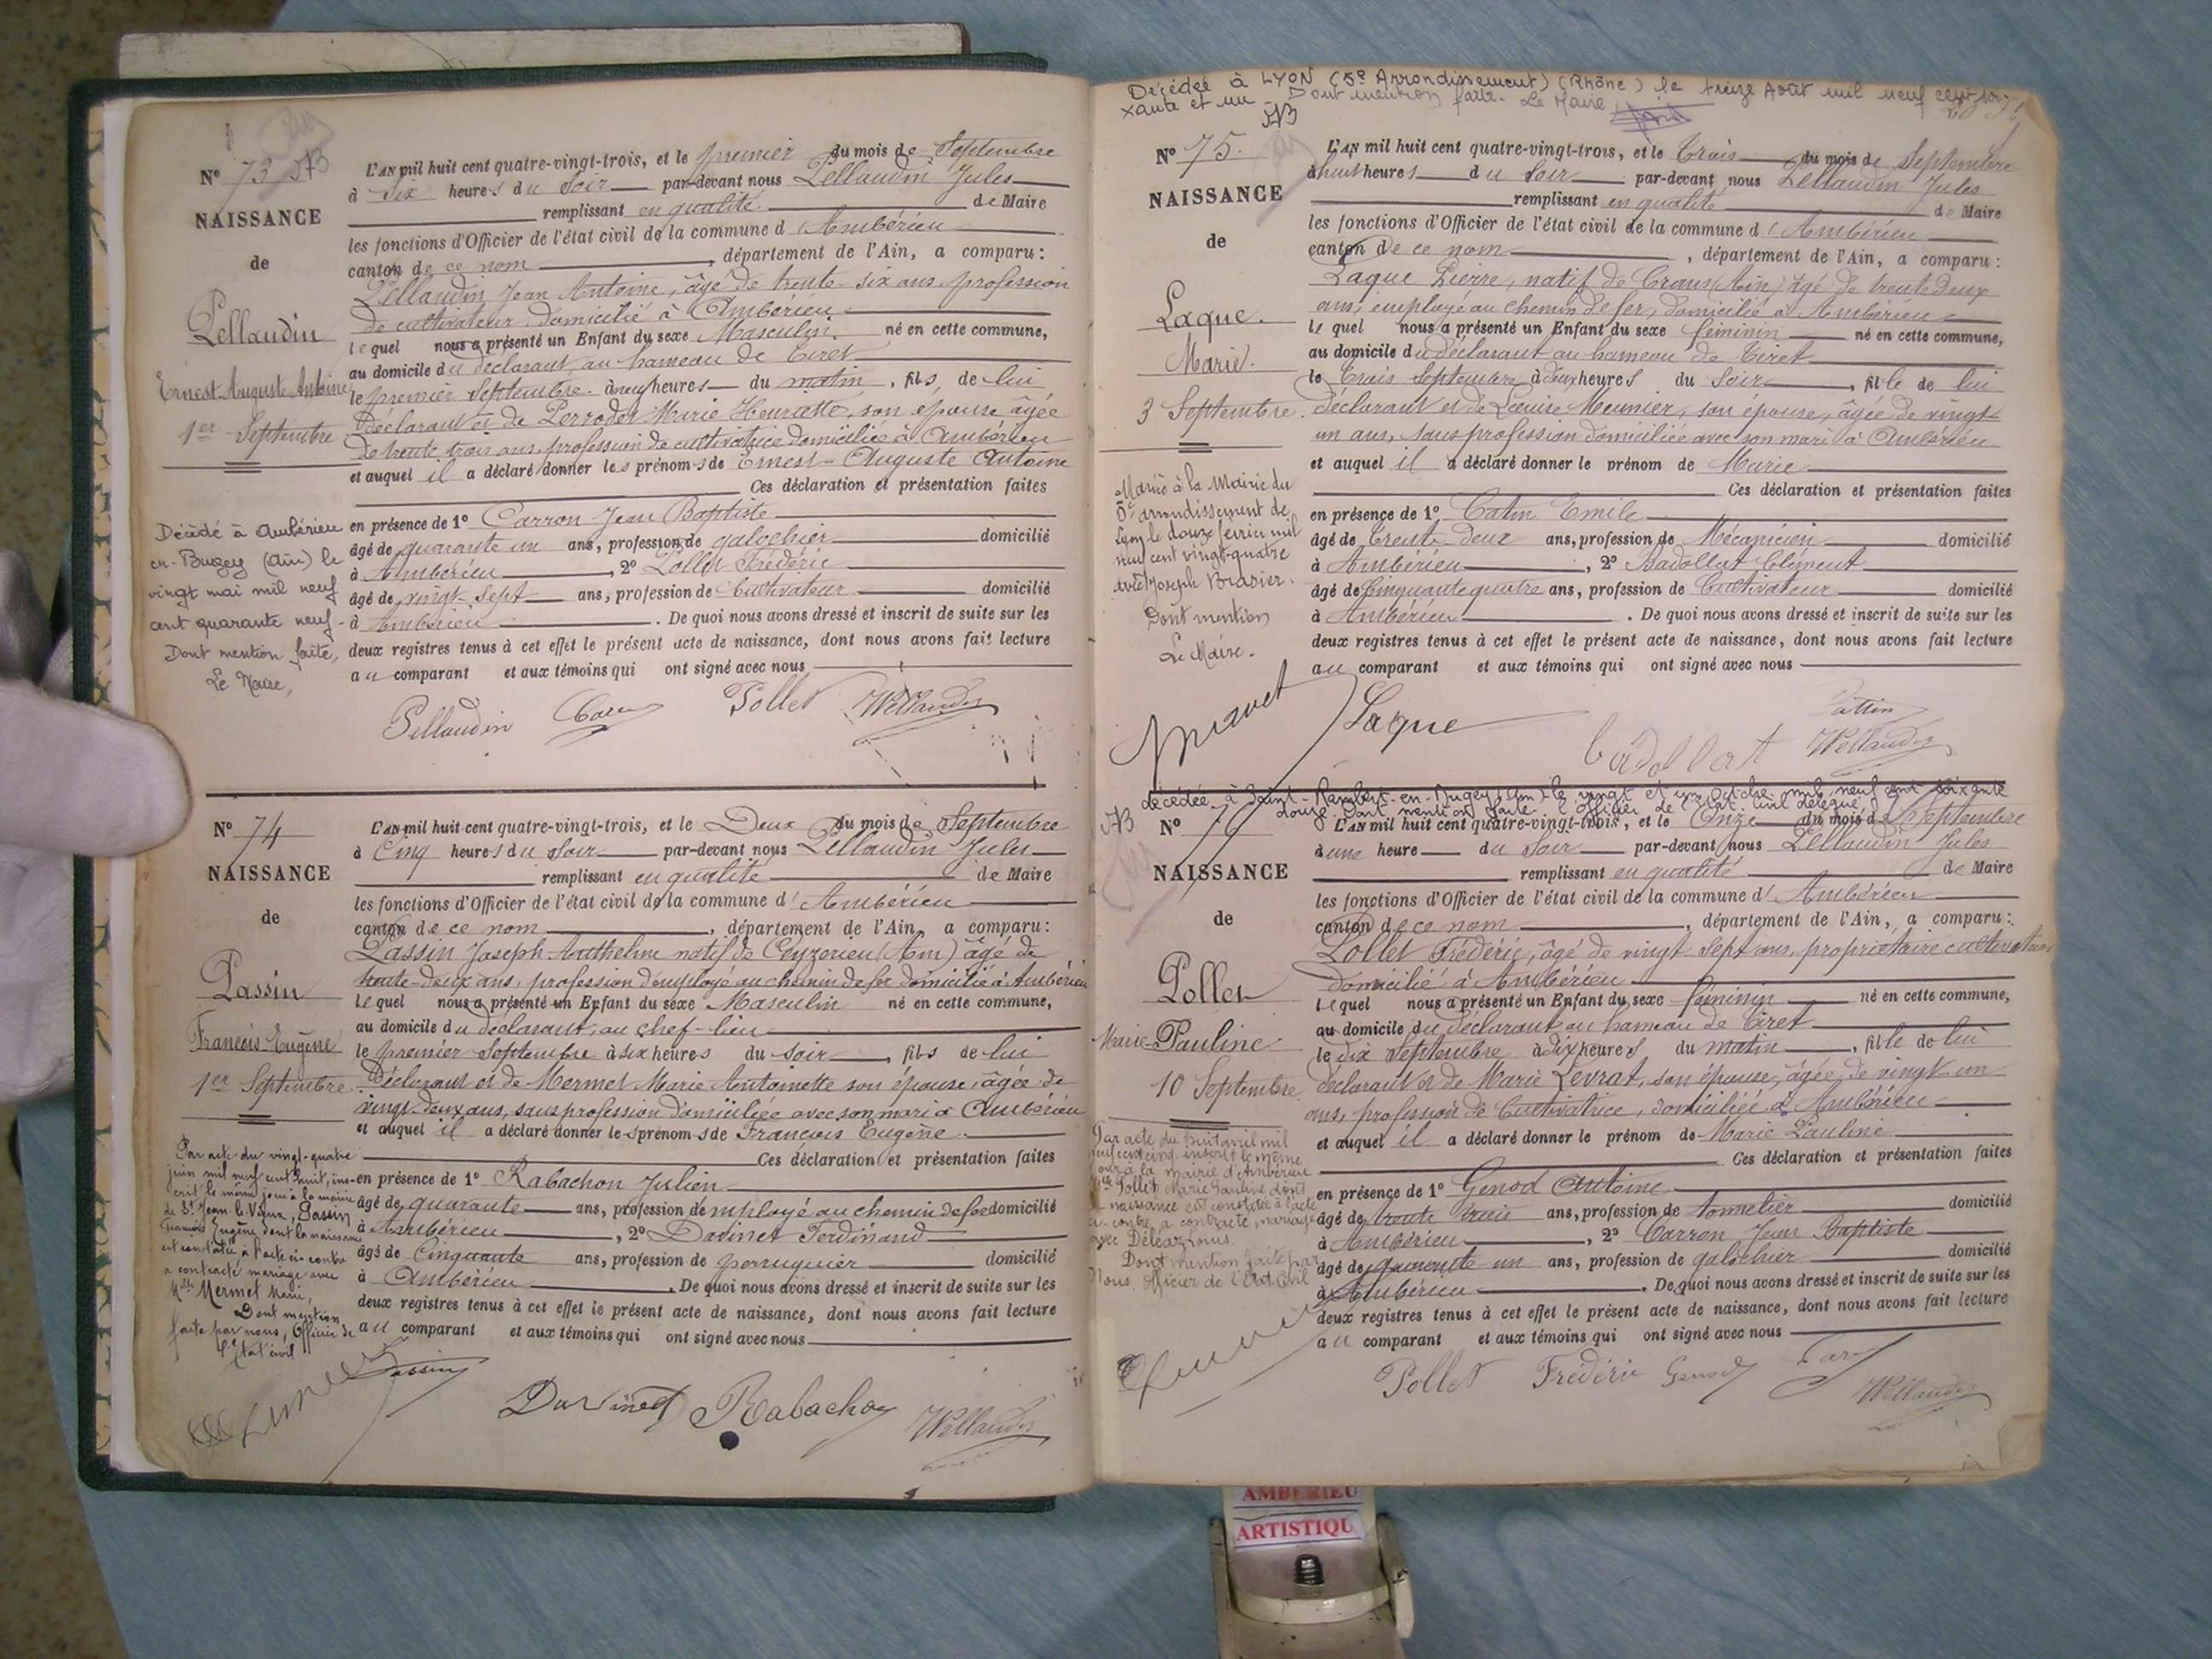 N° 73
NAISSANCE
de
Pellaudin
Ernest Auguste Antoine
1er Septembre
Décédé à Ambérieu
en-Bugey (Ain) le
vingt mai mil neuf
cent quarante neuf-
Dont mention faite,
Le Maire,
L'an mil huit cent quatre-vingt-trois, et le premier du mois de Septembre
à six heures du soir par-devant nous Pellaudin Jules
remplissant en qualité de Maire
les fonctions d'Officier de l'état civil de la commune d'Ambérieu
canton de ce nom, département de l'Ain, a comparu :
Pellaudin Jean Antoine, âgé de trente-six ans, profession
de cultivateur domicilié à Ambérieu
lequel nous a présenté un Enfant du sexe Masculin né en cette commune,
au domicile du déclarant, au hameau de Tiret
le premier Septembre à neuf heures du matin, fils de lui
déclarant et de Perrodet Marie Henriette, son épouse âgée
de trente trois ans, profession de cultivatrice domiciliée à Ambérieu
et auquel il a déclaré donner les prénoms de Ernest-Auguste Antoine
Ces déclaration et présentation faites
en présence de 1° Carron Jean Baptiste
âgé de quarante un ans, profession de galochier domicilié
à Ambérieu, 2° Pollet Frédéric
âgé de vingt-sept ans, profession de Cultivateur domicilié
à Ambérieu. De quoi nous avons dressé et inscrit de suite sur les
deux registres tenus à cet effet le présent acte de naissance, dont nous avons fait lecture
au comparant et aux témoins qui ont signé avec nous
Pellaudin Pollet
N° 74
NAISSANCE
de
Passin
François-Eugène
1er Septembre
Par acte du vingt-quatre
juin mil neuf cent huit, ins-
crit le même jour à la mairie
de St Jean-le-Vieux, Passin
François Eugène, dont la naissance
est constatée à l'acte ci-contre
a contracté mariage avec
Mlle Mermet Marie,
Dont mention
faite par nous, Officier de
l'État civil
L'an mil huit cent quatre-vingt-trois, et le Deux du mois de Septembre
à Cinq heures du soir par-devant nous Pellaudin Jules
remplissant en qualité de Maire
les fonctions d'Officier de l'état civil de la commune d'Ambérieu
canton de ce nom, département de l'Ain, a comparu :
Passin Joseph Anthelme natif de Ceyzerieu (Ain) âgé de
trente-deux ans, profession d'employé au chemin de fer domicilié à Ambérieu
lequel nous a présenté un Enfant du sexe Masculin né en cette commune,
au domicile du déclarant, au chef-lieu
le premier Septembre à six heures du soir, fils de lui
Déclarant et de Mermet Marie Antoinette son épouse, âgée de
vingt-deux ans, sans profession domiciliée avec son mari à Ambérieu
et auquel il a déclaré donner les prénoms de François Eugène
Ces déclaration et présentation faites
en présence de 1° Rabachon Julien
âgé de quarante ans, profession d'employé au chemin de fer domicilié
à Ambérieu, 2° Davinet Ferdinand
âgé de Cinquante ans, profession de perruquier domicilié
à Ambérieu. De quoi nous avons dressé et inscrit de suite sur les
deux registres tenus à cet effet le présent acte de naissance, dont nous avons fait lecture
au comparant et aux témoins qui ont signé avec nous
Passin
Davinet Rabachon
Décédée à LYON (5e Arrondissement) (Rhône) le treize Août mil neuf cent soi-
xante et un - Dont mention faite - Le Maire,
N° 75.
NAISSANCE
de
Laque.
Marie.
3 Septembre.
Mariée à la Mairie du
5e arrondissement de
Lyon le douze février mil
neuf cent vingt-quatre
avec Joseph Brasier.
Dont mention
Le Maire.
L'an mil huit cent quatre-vingt-trois, et le Trois du mois de Septembre
à huit heures du soir par-devant nous Pellaudin Jules
remplissant en qualité de Maire
les fonctions d'Officier de l'état civil de la commune d'Ambérieu
canton de ce nom, département de l'Ain, a comparu :
Laque Pierre, natif de Crans (Ain) âgé de trente deux
ans, employé au chemin de fer, domicilié à Ambérieu
lequel nous a présenté un Enfant du sexe féminin né en cette commune,
au domicile du déclarant au hameau de Tiret
le Trois Septembre à deux heures du soir, fille de lui
déclarant et de Louise Meunier, son épouse, âgée de vingt
un ans, sans profession domiciliée avec son mari à Ambérieu
et auquel il a déclaré donner le prénom de Marie
Ces déclaration et présentation faites
en présence de 1° Catin Emile
âgé de trente deux ans, profession de Mécanicien domicilié
à Ambérieu, 2° Badollat Clément
âgé de Cinquante quatre ans, profession de Cultivateur domicilié
à Ambérieu. De quoi nous avons dressé et inscrit de suite sur les
deux registres tenus à cet effet le présent acte de naissance, dont nous avons fait lecture
au comparant et aux témoins qui ont signé avec nous
Laque badollat
décédée à Saint-Rambert-en-Bugey (Ain) le vingt et un octobre mil neuf cent soixante
douze. Dont mention faite. L'officier de l'État Civil délégué
N° 76
NAISSANCE
de
Pollet
Marie-Pauline
10 Septembre.
Par acte du huit avril mil
neuf cent cinq inscrit le même
jour à la mairie d'Ambérieu
Pollet Marie Pauline, dont
la naissance est constatée à l'acte
ci-contre, a contracté mariage
avec Déléaz Louis.
Dont mention faite par
Nous, Officier de l'État Civil
L'an mil huit cent quatre-vingt-trois, et le Onze du mois de Septembre
à une heure du soir par-devant nous Pellaudin Jules
remplissant en qualité de Maire
les fonctions d'Officier de l'état civil de la commune d'Ambérieu
canton de ce nom, département de l'Ain, a comparu :
Pollet Frédéric, âgé de vingt-sept ans, propriétaire cultivateur
domicilié à Ambérieu
lequel nous a présenté un Enfant du sexe féminin né en cette commune,
au domicile du déclarant au hameau de Tiret
le dix Septembre à dix heures du matin, fille de lui
déclarant et de Marie Levrat, son épouse, âgée de vingt un
ans, profession de Cultivatrice, domiciliée à Ambérieu
et auquel il a déclaré donner le prénom de Marie Pauline
Ces déclaration et présentation faites
en présence de 1° Genod Antoine
âgé de trente trois ans, profession de tonnelier domicilié
à Ambérieu, 2° Carron Jean Baptiste
âgé de quarante un ans, profession de galochier domicilié
à Ambérieu. De quoi nous avons dressé et inscrit de suite sur les
deux registres tenus à cet effet le présent acte de naissance, dont nous avons fait lecture
au comparant et aux témoins qui ont signé avec nous
Pollet Frédéric Genod
AMBERIEU
ARTISTIQU